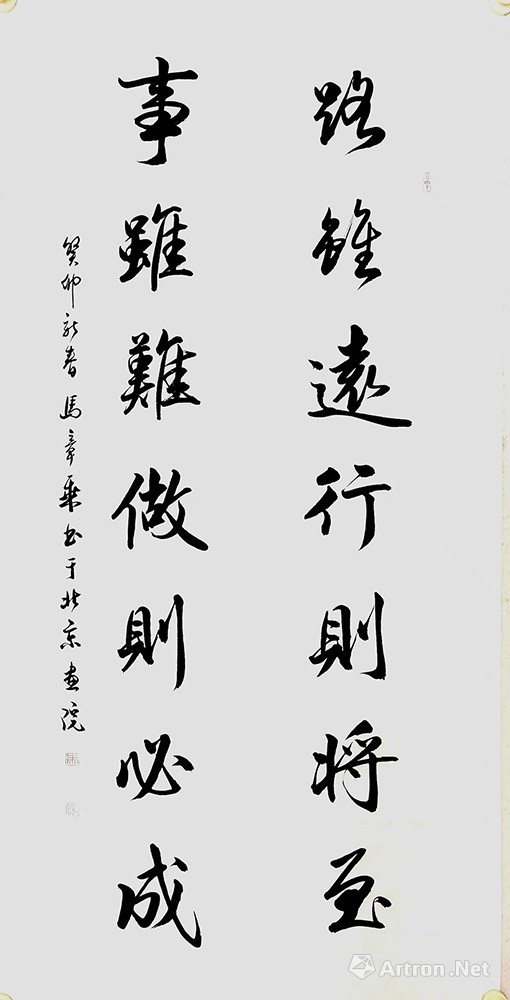 路雖遠行則将至
事雖難做則必成
癸卯新春馬章乘书于北京画院
Artron.Net